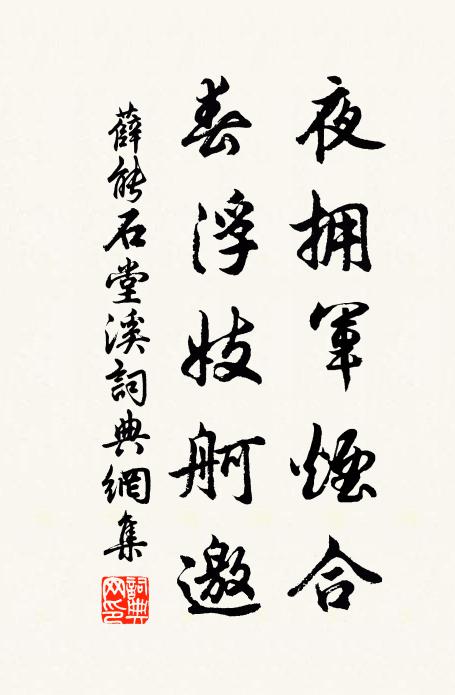 夜拥军煙合
春浮妓舸邀
薛能石堂溪詞典網集
詞典網印